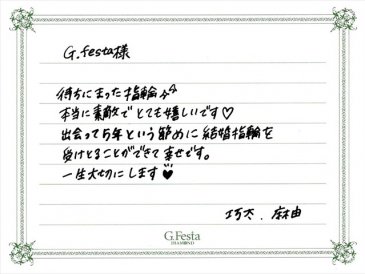 G.festa様
待ちにまった指輪♪♪
本当に素敵でとても嬉しいです♡
出会って5年という節めに結婚指輪を
受けとることができて幸せです。
一生大切にします♥
巧大. 麻由
G.Festa
DIAMOND